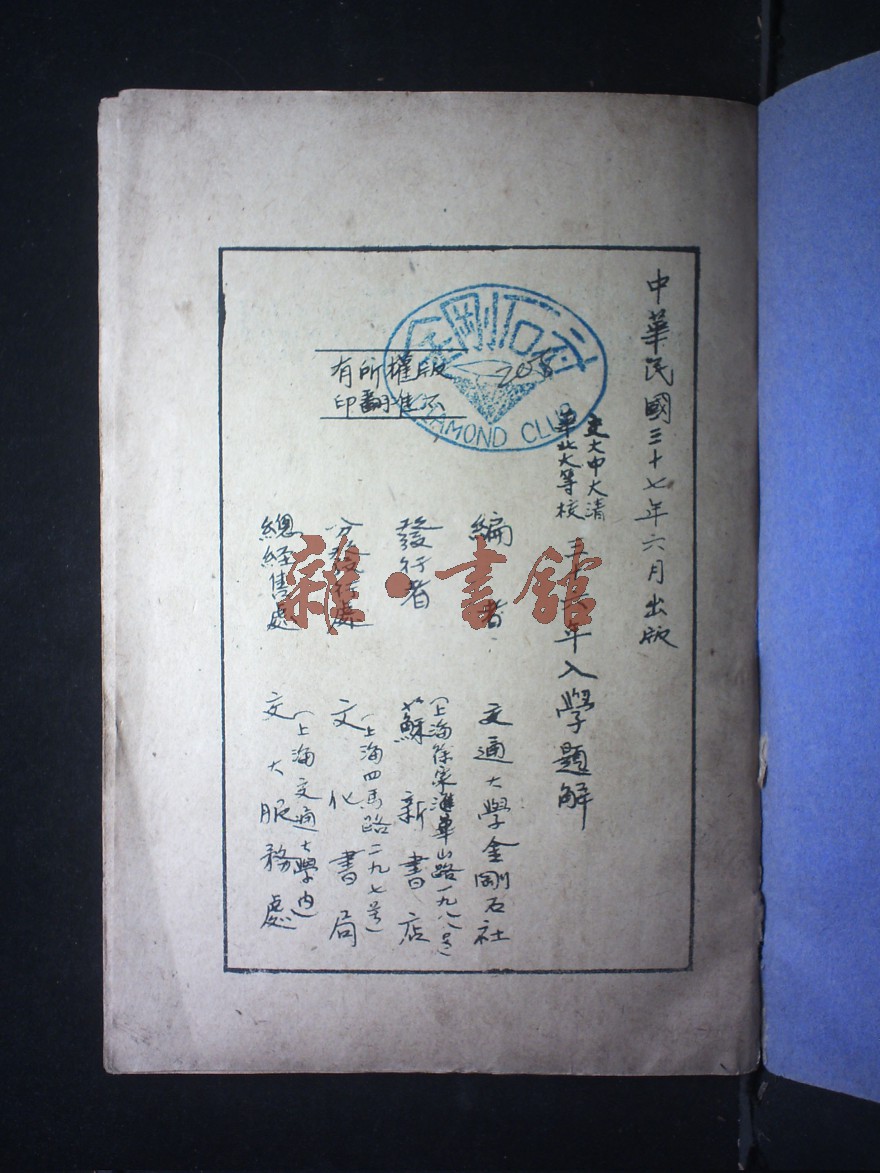 中華民國三十七年六月出版
交大中大清
華北大等校
三十六年入學題解
金剛石社
DIAMOND CLUB
版權所有
不准翻印
編者
交通大學金剛石社
發行者
(上海徐家滙華山路一九八一号)
蘇新書店
分發行處
(上海四馬路二九七号)
文化書局
總經售處
(上海交通大學內)
交大服務處
雜·書館